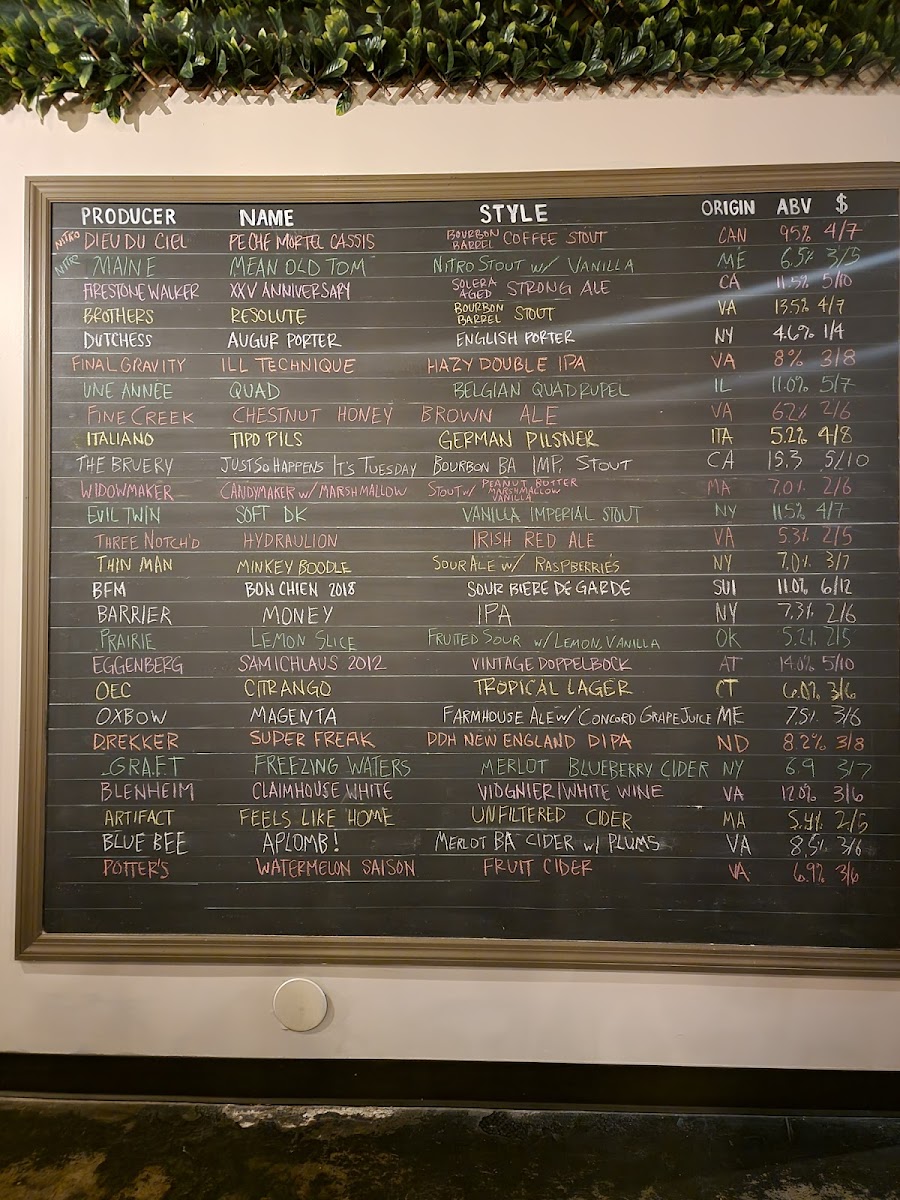 PRODUCER NAME STYLE ORIGIN ABV $
NITRO DIEU DU CIEL PECHE MORTEL CASSIS BOURBON BARREL COFFEE STOUT CAN 9.5% 4/7
NITRO MAINE MEAN OLD TOM NITRO STOUT W/ VANILLA ME 6.5% 3/5
FIRESTONE WALKER XXV ANNIVERSARY SOLERA AGED STRONG ALE CA 11.5% 5/10
BROTHERS RESOLUTE BOURBON BARREL STOUT VA 13.5% 4/7
DUTCHESS AUGUR PORTER ENGLISH PORTER NY 4.6% 1/4
FINAL GRAVITY ILL TECHNIQUE HAZY DOUBLE IPA VA 8% 3/8
UNE ANNÉE QUAD BELGIAN QUADRUPEL IL 11.0% 5/7
FINE CREEK CHESTNUT HONEY BROWN ALE VA 6.2% 2/6
ITALIANO TIPO PILS GERMAN PILSNER ITA 5.2% 4/8
THE BRUERY JUST SO HAPPENS IT'S TUESDAY BOURBON BA IMP. STOUT CA 15.3 5/10
WIDOWMAKER CANDYMAKER W/ MARSHMALLOW STOUT W/ PEANUT BUTTER MARSHMALLOW VANILLA MA 7.0% 2/6
EVIL TWIN SOFT DK VANILLA IMPERIAL STOUT NY 11.5% 4/7
THREE NOTCH'D HYDRAULION IRISH RED ALE VA 5.3% 2/5
THIN MAN MINKEY BOODLE SOUR ALE W/ RASPBERRIES NY 7.0% 3/7
BFM BON CHIEN 2018 SOUR BIERE DE GARDE SUI 11.0% 6/12
BARRIER MONEY IPA NY 7.3% 2/6
PRAIRIE LEMON SLICE FRUITED SOUR W/ LEMON, VANILLA OK 5.2% 2/5
EGGENBERG SAMICHLAUS 2012 VINTAGE DOPPELBOCK AT 14.0% 5/10
OEC CITRANGO TROPICAL LAGER CT 6.0% 3/6
OXBOW MAGENTA FARMHOUSE ALE W/ CONCORD GRAPE JUICE ME 7.5% 3/6
DREKKER SUPER FREAK DDH NEW ENGLAND DIPA ND 8.2% 3/8
GRAFT FREEZING WATERS MERLOT BLUEBERRY CIDER NY 6.9 3/7
BLENHEIM CLAIMHOUSE WHITE VIOGNIER/WHITE WINE VA 12.0% 3/6
ARTIFACT FEELS LIKE HOME UNFILTERED CIDER MA 5.4% 2/5
BLUE BEE APLOMB! MERLOT BA CIDER W/ PLUMS VA 8.5% 3/6
POTTER'S WATERMELON SAISON FRUIT CIDER VA 6.9% 3/6